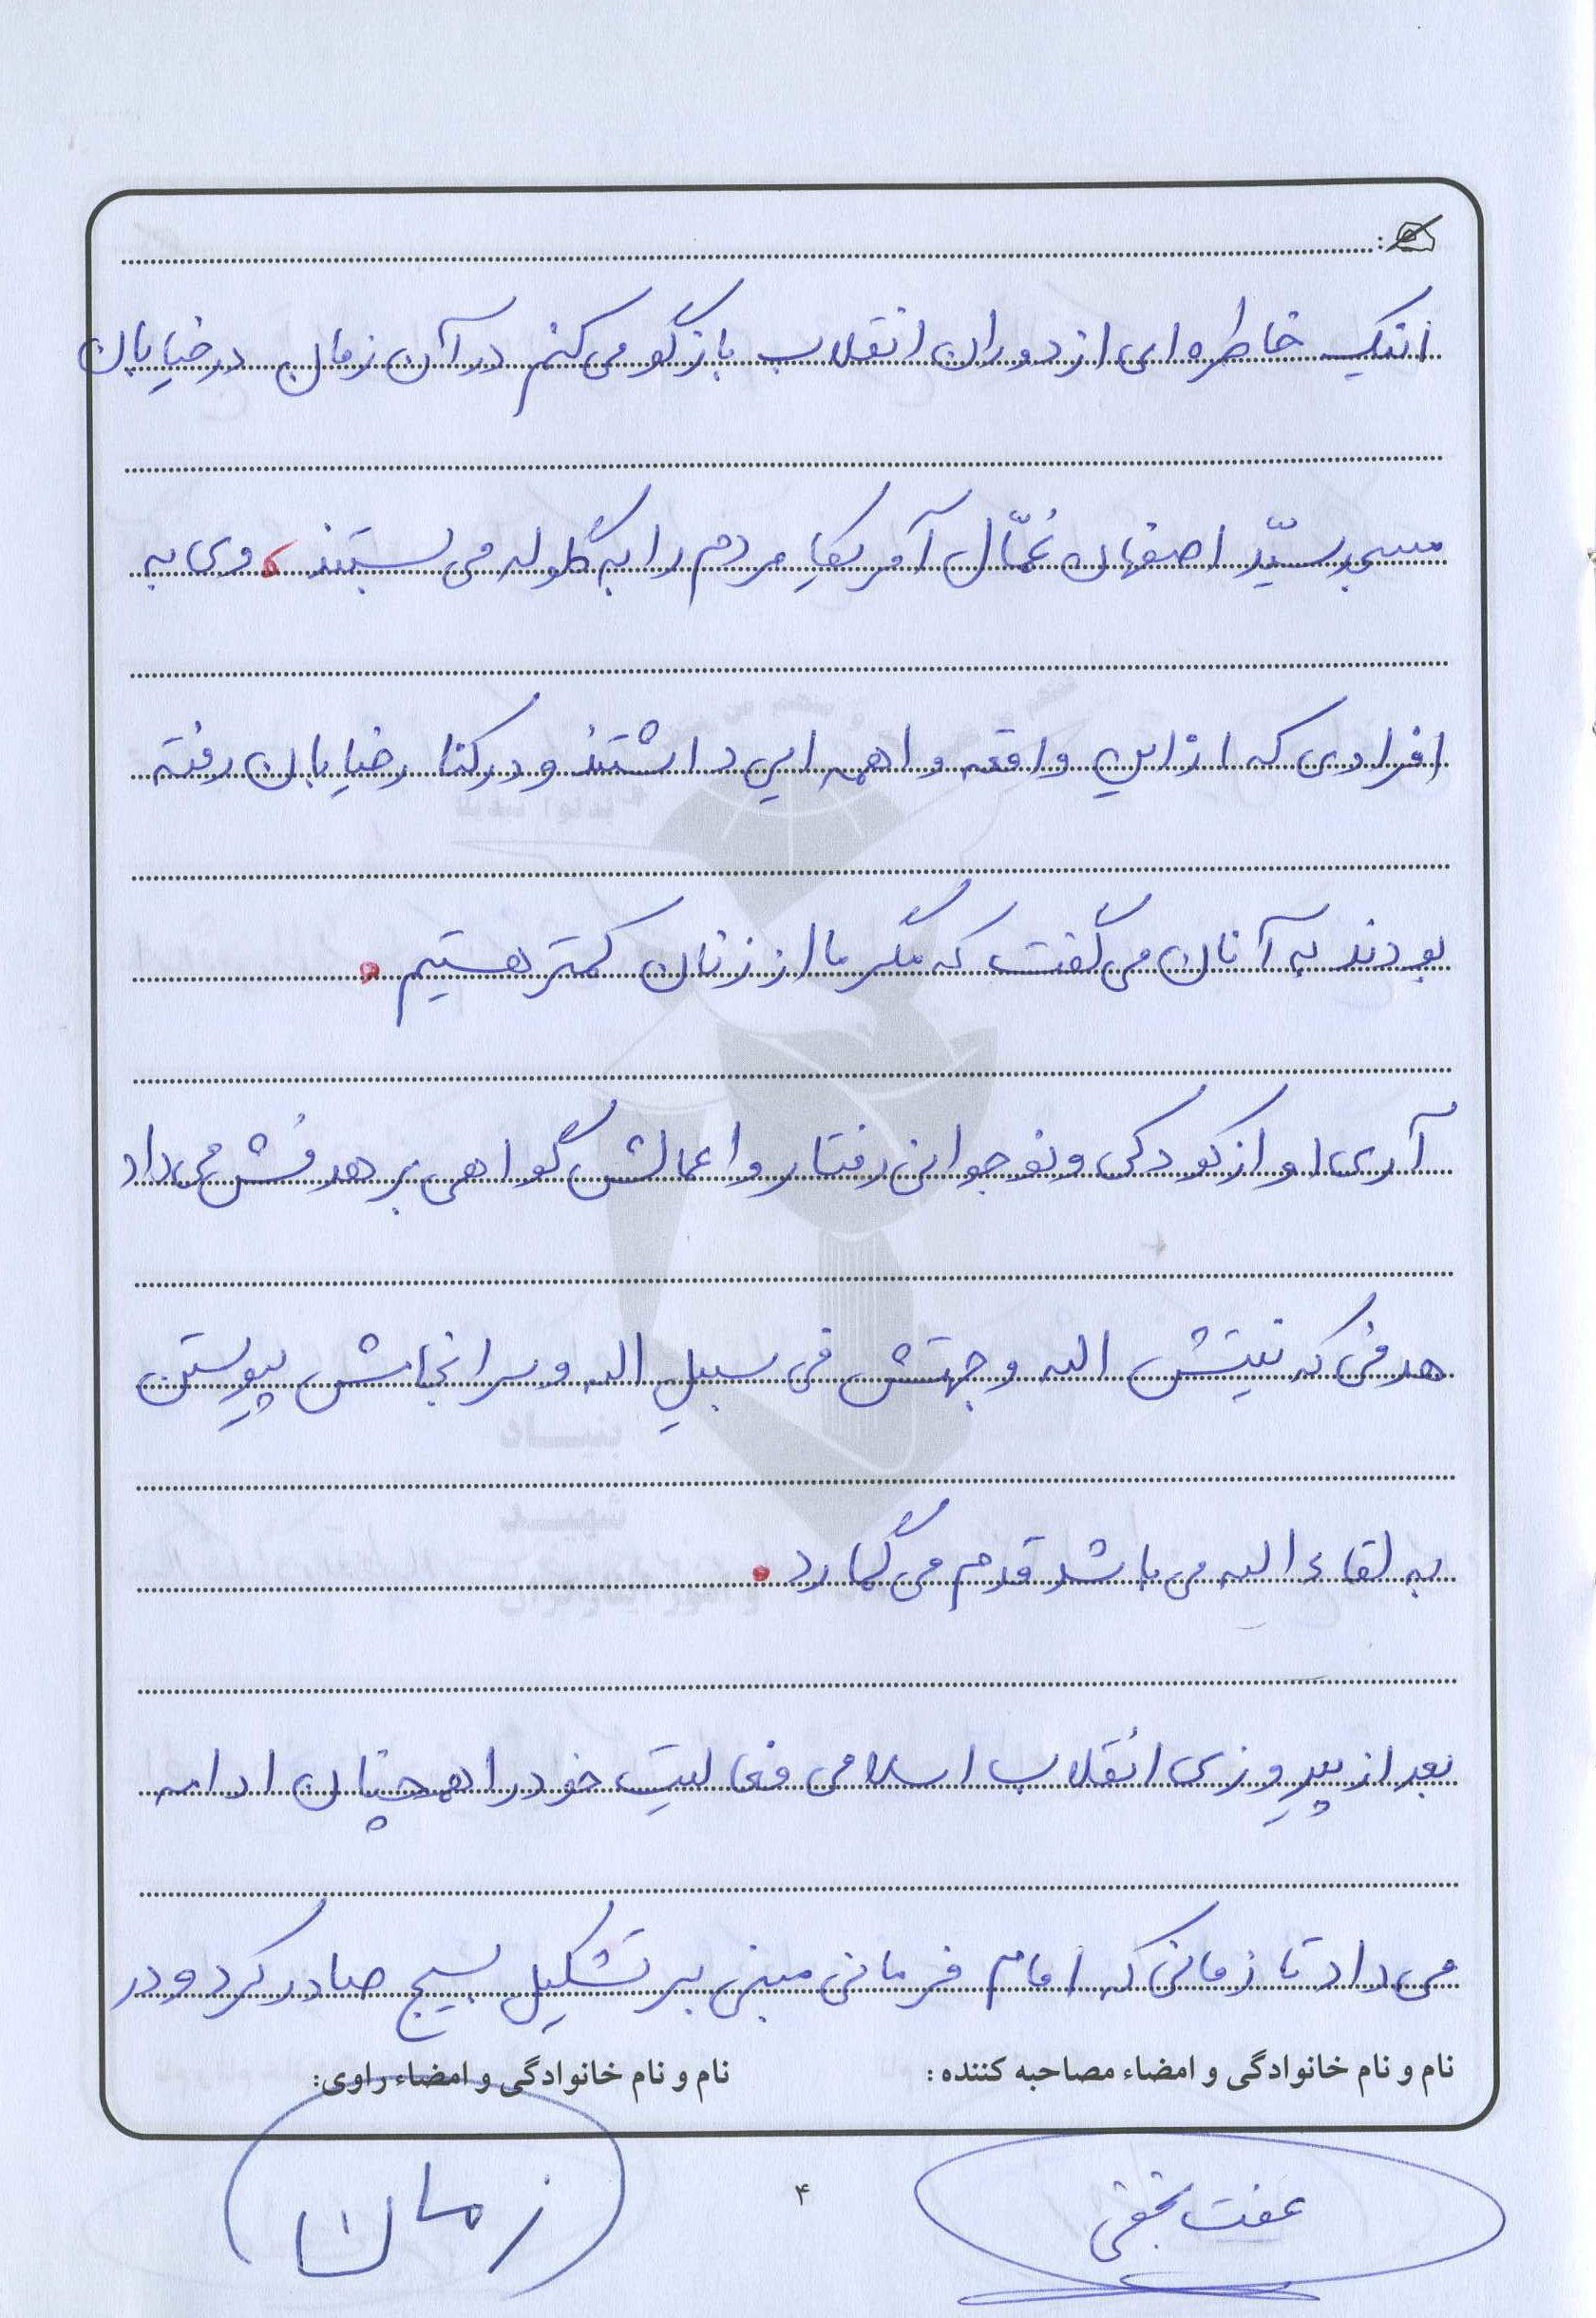 اینک خاطره ای از دوران انقلاب بازگو می کنم در آن زمان در خیابان
مسجد سیّد اصفهان عُمّال آمریکا مردم را به گلوله می بستند، وی به
افرادی که از این واقعه واهمه ایی داشتند و در کنار خیابان رفته
بودند به آنان می گفت که مگر ما از زنان کمتر هستیم .
آری او از کودکی و نوجوانی رفتار و اعمالش گواهی بر هدفش می داد
هدفی که نیتش الله و جهتش فی سبیل الله و سرانجامش پیوستن
به لقاء الله می باشد قدم می گمارد .
بعد از پیروزی انقلاب اسلامی فعالیت خود را همچنان ادامه
می داد تا زمانی که امام فرمانی مبنی بر تشکیل بسیج صادر کرد و در
نام و نام خانوادگی و امضاء مصاحبه کننده :
نام و نام خانوادگی و امضاء راوی:
عفت نجفی
زمان
۴